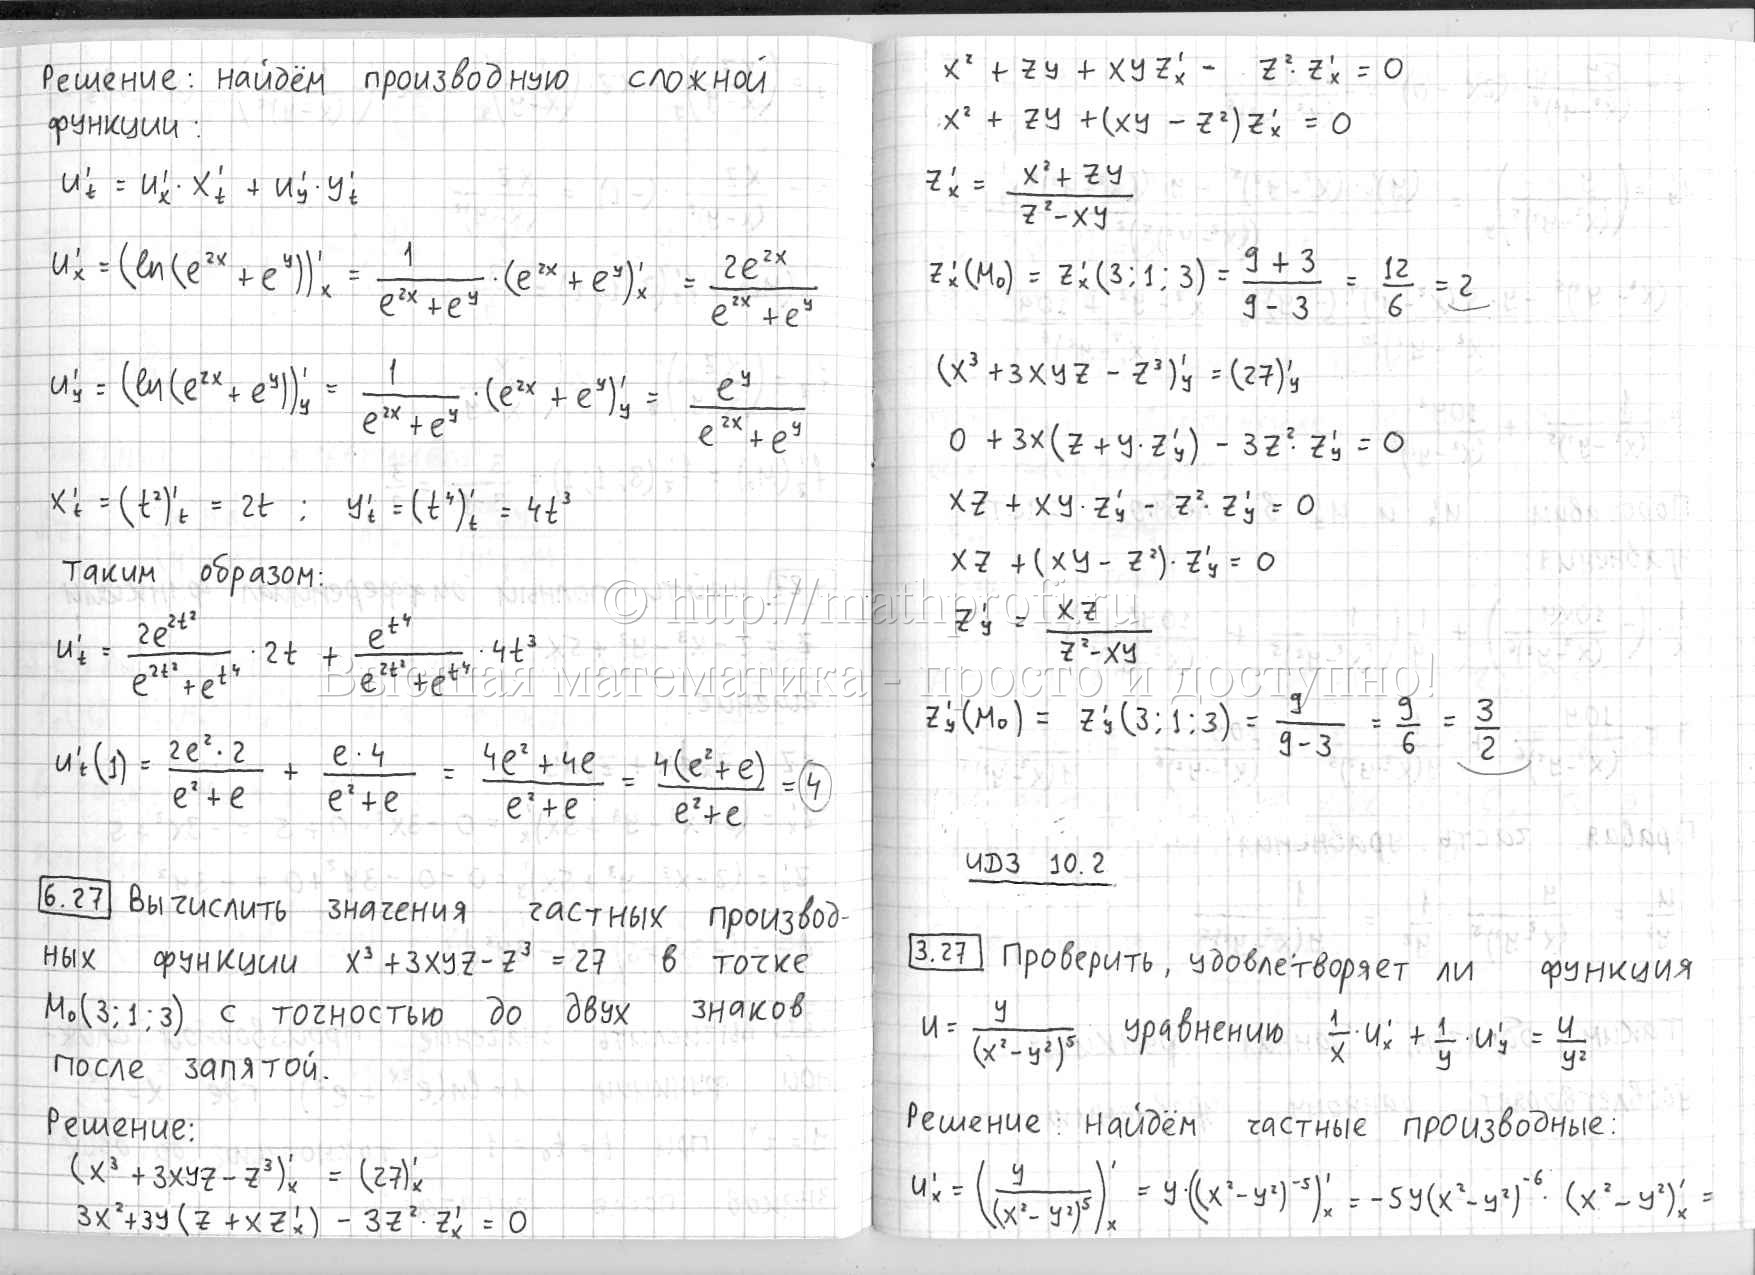 Решение: найдём производную сложной
функции:
u'ₜ = u'ₓ · x'ₜ + u'ᵧ · y'ₜ
u'ₓ = (ln(e^{2x} + e^y))'ₓ = 1/(e^{2x} + e^y) · (e^{2x} + e^y)'ₓ = 2e^{2x}/(e^{2x} + e^y)
u'ᵧ = (ln(e^{2x} + e^y))'ᵧ = 1/(e^{2x} + e^y) · (e^{2x} + e^y)'ᵧ = e^y/(e^{2x} + e^y)
x'ₜ = (t²)'ₜ = 2t ; y'ₜ = (t⁴)'ₜ = 4t³
Таким образом:
u'ₜ = 2e^{2t²}/(e^{2t²} + e^{t⁴}) · 2t + e^{t⁴}/(e^{2t²} + e^{t⁴}) · 4t³
u'ₜ(1) = 2e²·2/(e² + e) + e·4/(e² + e) = (4e² + 4e)/(e² + e) = 4(e² + e)/(e² + e) = 4
6.27 Вычислить значения частных производ-
ных функции x³ + 3xyz - z³ = 27 в точке
M₀(3; 1; 3) с точностью до двух знаков
после запятой.
Решение:
(x³ + 3xyz - z³)'ₓ = (27)'ₓ
3x² + 3y(z + xz'ₓ) - 3z² · z'ₓ = 0
x² + zy + xyz'ₓ - z² · z'ₓ = 0
x² + zy + (xy - z²)z'ₓ = 0
z'ₓ = (x² + zy)/(z² - xy)
z'ₓ(M₀) = z'ₓ(3; 1; 3) = (9 + 3)/(9 - 3) = 12/6 = 2
(x³ + 3xyz - z³)'ᵧ = (27)'ᵧ
0 + 3x(z + y · z'ᵧ) - 3z² · z'ᵧ = 0
xz + xy · z'ᵧ - z² · z'ᵧ = 0
xz + (xy - z²) · z'ᵧ = 0
z'ᵧ = xz/(z² - xy)
z'ᵧ(M₀) = z'ᵧ(3; 1; 3) = 9/(9-3) = 9/6 = 3/2
ИДЗ 10.2
3.27 Проверить, удовлетворяет ли функция
u = y/(x² - y²)⁵ уравнению 1/x · u'ₓ + 1/y · u'ᵧ = u/y²
Решение: найдём частные производные:
u'ₓ = (y/(x² - y²)⁵)'ₓ = y·((x² - y²)⁻⁵)'ₓ = -5y(x² - y²)⁻⁶ · (x² - y²)'ₓ =
© http://mathprofi.ru
Высшая математика - просто и доступно!